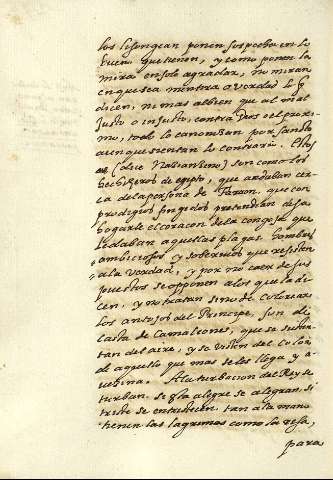 los lisongean ponen sospecha en lo
bueno que tienen, y como ponen la
mira en solo agradar, no miran
en que sea mentira o verdad lo q
dicen, ni mas al bien que al mal
justo o injusto, contra Dios o el proxi-
mo, todo lo canonizan por santo
aunque sientan lo contrario. Estos
(dice Nazianzeno) son como los
hechiceros de egipto, que andaban cer-
ca de la persona de Faraon, que con
prodigios fingidos pretendian desa-
hogarle el coracon de la congoja que
le daban aquellas plagas. hombres
ambiciosos y sobervios que resisten
a la verdad, y por no caer de sus
puestos se opponen a los que la di-
cen, y no tratan sino de colorear
los antojos del Principe, son de
casta de Camaleones, que se susten-
tan del aire, y se visten del color
de aquello que mas se les llega y a-
vecina. A la turbacion del Rey se
turban. se esta alegre se alegran. si
triste se entristecen. tan a la mano
tienen las lagrimas como la risa,
para